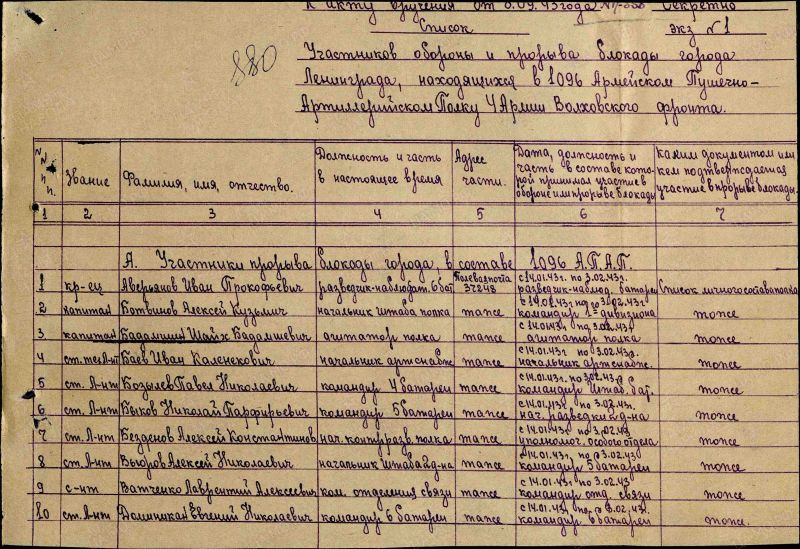 К акту вручения от 8.09.43 года Секретно
Список экз №1
880
Участников обороны и прорыва блокады города
Ленинграда, находящихся в 1096 Армейском Пушечно-
Артиллерийском Полку 4 Армии Волховского фронта.
№№ п/п. Звание Фамилия, имя, отчество. Должность и часть в настоящее время Адрес части. Дата, должность и часть в составе которой принимал участие в обороне или прорыве блокады Каким документом или кем подтверждается участие в прорыве блокады.
1 2 3 4 5 6 7
А. Участники прорыва блокады города, в составе 1096 А.П.А.П.
1 кр-ец Аверьянов Иван Прокофьевич разведчик-наблюдат. 6 бат Полевая почта 37248 с 14.01.43г. по 3.02.43г. разведчик-наблюд. батареи Список личного состава полка
2 капитан Ботвинов Алексей Кузьмич начальник штаба полка тоже по 3.02.43г. командир 1го дивизиона тоже
3 капитан Бадалшиевич агитатор полка тоже с 14.01.43г по 3.02.43г агитатор полка тоже
4 Баев Иван Каленекович начальник артснабж. тоже с 14.01.43г. по 3.02.43г. начальник артснабж. тоже
5 ст. Л-нт Козылев Павел Николаевич командир 4 батареи тоже с 14.01.43г. по 3.02.43г. командир штаб. бат. тоже
6 ст. Л-нт Быков Николай Парфирьевич командир 5 батареи тоже с 14.01.43г по 3.02.43г. нач. разведки д-на тоже
7 ст. Л-нт Безденов Алексей Константинов нач. контрразв. полка тоже с 14.01.43г по 3.02.43 уполномоч. особого отдела тоже
8 ст. Л-нт Вьюров Алексей Николаевич начальник штаба 2 д-на тоже с 14.01.43г. по 3.02.43г командир 5 батареи тоже
9 с-нт Ватченко Лаврентий Алексеевич ком. отделения связи тоже с 14.01.43г по 3.02.43 командир отд. связи тоже
10 ст. Л-нт Доминикан Евгений Николаевич командир 6 батареи тоже с 14.01.43г. по 3.02.43г. командир 6 батареи тоже.